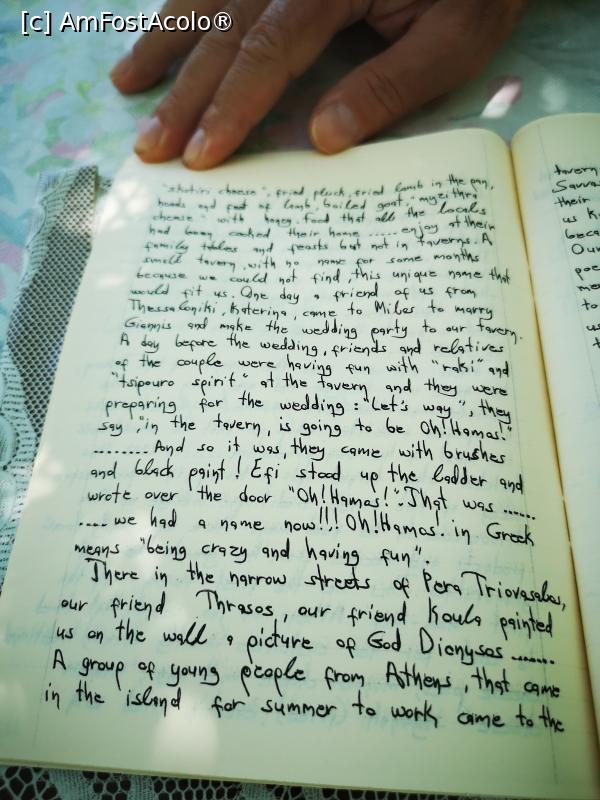 [c] AmFostAcolo®
"skotiri cheese", fried pluck, fried lamb in the pan,
heads and feet of lamb, boiled goat, "myzithra
cheese" with honey. Food that all the locals
had been cooked their home ..... enjoy at their
family tables and feasts but not in taverns. A
small tavern, with no name for some months
because we could not find, this unique name that
would fit us. One day a friend of us from
Thessaloniki, Katerina, came to Milos to marry
Giannis and make the wedding party to our tavern.
A day before the wedding, friends and relatives
of the couple were having fun with "raki" and
"tsipouro spirit" at the tavern and they were
preparing for the wedding: "Let's way", they
say, "in the tavern, is going to be Oh!Hamos!"
........And so it was, they came with brushes
and black paint! Efi stood up the ladder and
wrote over the door "Oh!Hamos!". That was ......
.... we had a name now!!! Oh!Hamos! in Greek
means "being crazy and having fun".
There in the narrow streets of Pera Triovasalos,
our friend Thrasos, our friend Koula painted
us on the wall a picture of God Dionysos .......
A group of young people from Athens, that came
in the island for summer to work came to the
tavern
Savva
their
us K
beca
Our
poe
me
to
us
t